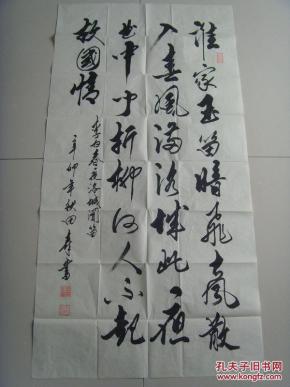 誰家玉笛暗飛聲散
入春風滿洛城此夜
曲中聞折柳何人不起
故園情
李白春夜洛城聞笛
辛卯年秋田書
孔夫子旧书网